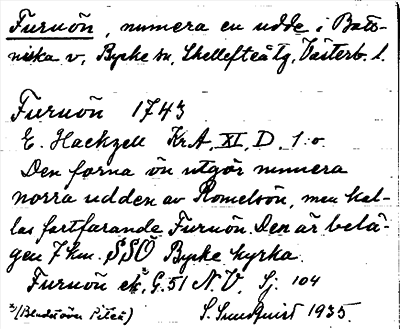 Furuön, numera en udde i Bott-
niska v, Byske sn, Skellefteå tg, Västerb. l.
Furuön 1743
E. Hackzell KrA, XI, D, 1:o.
Den forna ön utgör numera
norra udden av Romelsön, men kal-
las fortfarande Furuön. Den är belä-
gen 7 km. SSÖ Byske kyrka.
Furuön ek, G. 51 N.V. Sj. 104
x/(Bladet över Piteå) S. Sundqvist 1935.